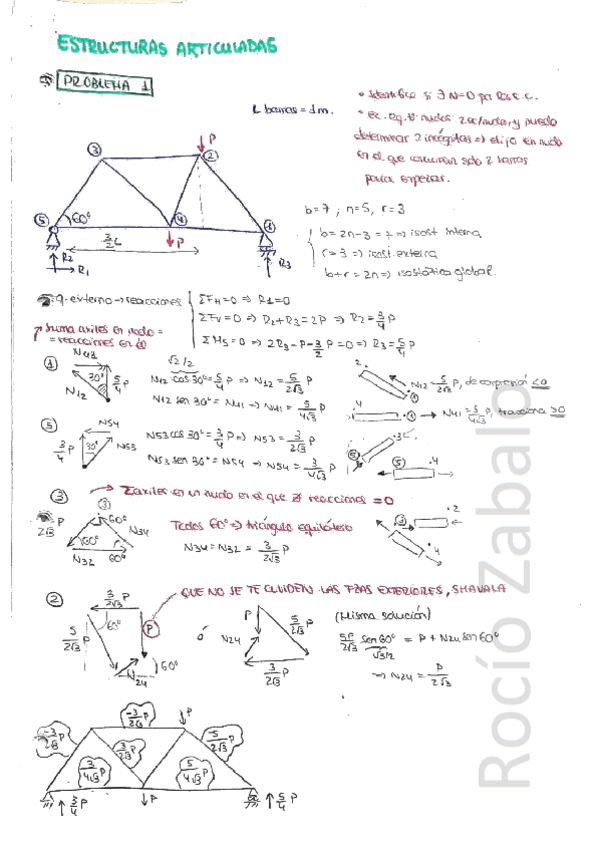 ESTRUCTURAS ARTICULADAS
PROBLEMA 1
L barras = 1m.
• Identifico si ∃ N=0 por
• Ec. eq. nudos: 2 ec/nudo, y puedo
determinar 2 incógnitas ⇒ elijo en nudo
en el que concurran solo 2 barras
para empezar.
P
3
2
5
60°
4
1
3/2 L
P
R2
R1
R3
b=7 ; n=5, r=3
b=2n-3=7 ⇒ isost interna
r=3 ⇒ isost. externa
b+r=2n ⇒ isostática global.
eq. externo → reacciones
ΣFH=0 ⇒ R1=0
ΣFV=0 ⇒ R2+R3=2P ⇒ R2=3/4 P
ΣM5=0 ⇒ 2R3-P-3/2 P=0 ⇒ R3=5/4 P
Suma axiles en nudo =
= reacciones en él
1
N41
30°
5/4 P
N12
√2/2
N12 cos30°=5/4 P ⇒ N12=5/2√3 P
N12 sen 30°=N41 ⇒ N41=5/4√3 P
2
N12=5/2√3 P, de compresión <0
4
N41=5/4√3 P, tracciona >0
5
N54
3/4 P
30°
N53
N53 cos 30°=3/4 P ⇒ N53=3/2√3 P
N53 sen 30°=N54 ⇒ N54=3/4√3 P
3
5
4
3
Σaxiles en un nudo en el que ∄ reacciones =0
3/2√3 P
60°
60°
N34
N32
60°
Todos 60° ⇒ triángulo equilátero
N34=N32=3/2√3 P
3
2
4
2
QUE NO SE TE OLVIDEN LAS FZAS EXTERIORES, SHAVALA
3/2√3 P
5/2√3 P
60°
P
N24
60°
ó
P
5/2√3 P
N24
3/2√3 P
(Misma solución)
5P/2√3 sen60° = P + N24 sen60°
√3/2
⇒ N24=P/2√3
-3/2√3 P
P
-3/2√3 P
3/2√3 P
-5/2√3 P
3/4√3 P
5/4√3 P
3/4 P
P
5/4 P
Rocío Zabalo